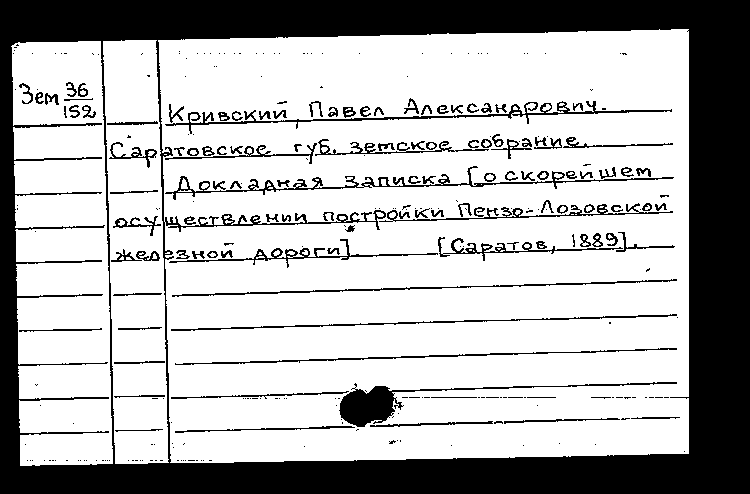 Зем 36/152
Кривский, Павел Александрович.
Саратовское губ. земское собрание.
Докладная записка [о скорейшем
осуществлении постройки Пензо-Лозовской
железной дороги]. [Саратов, 1889].